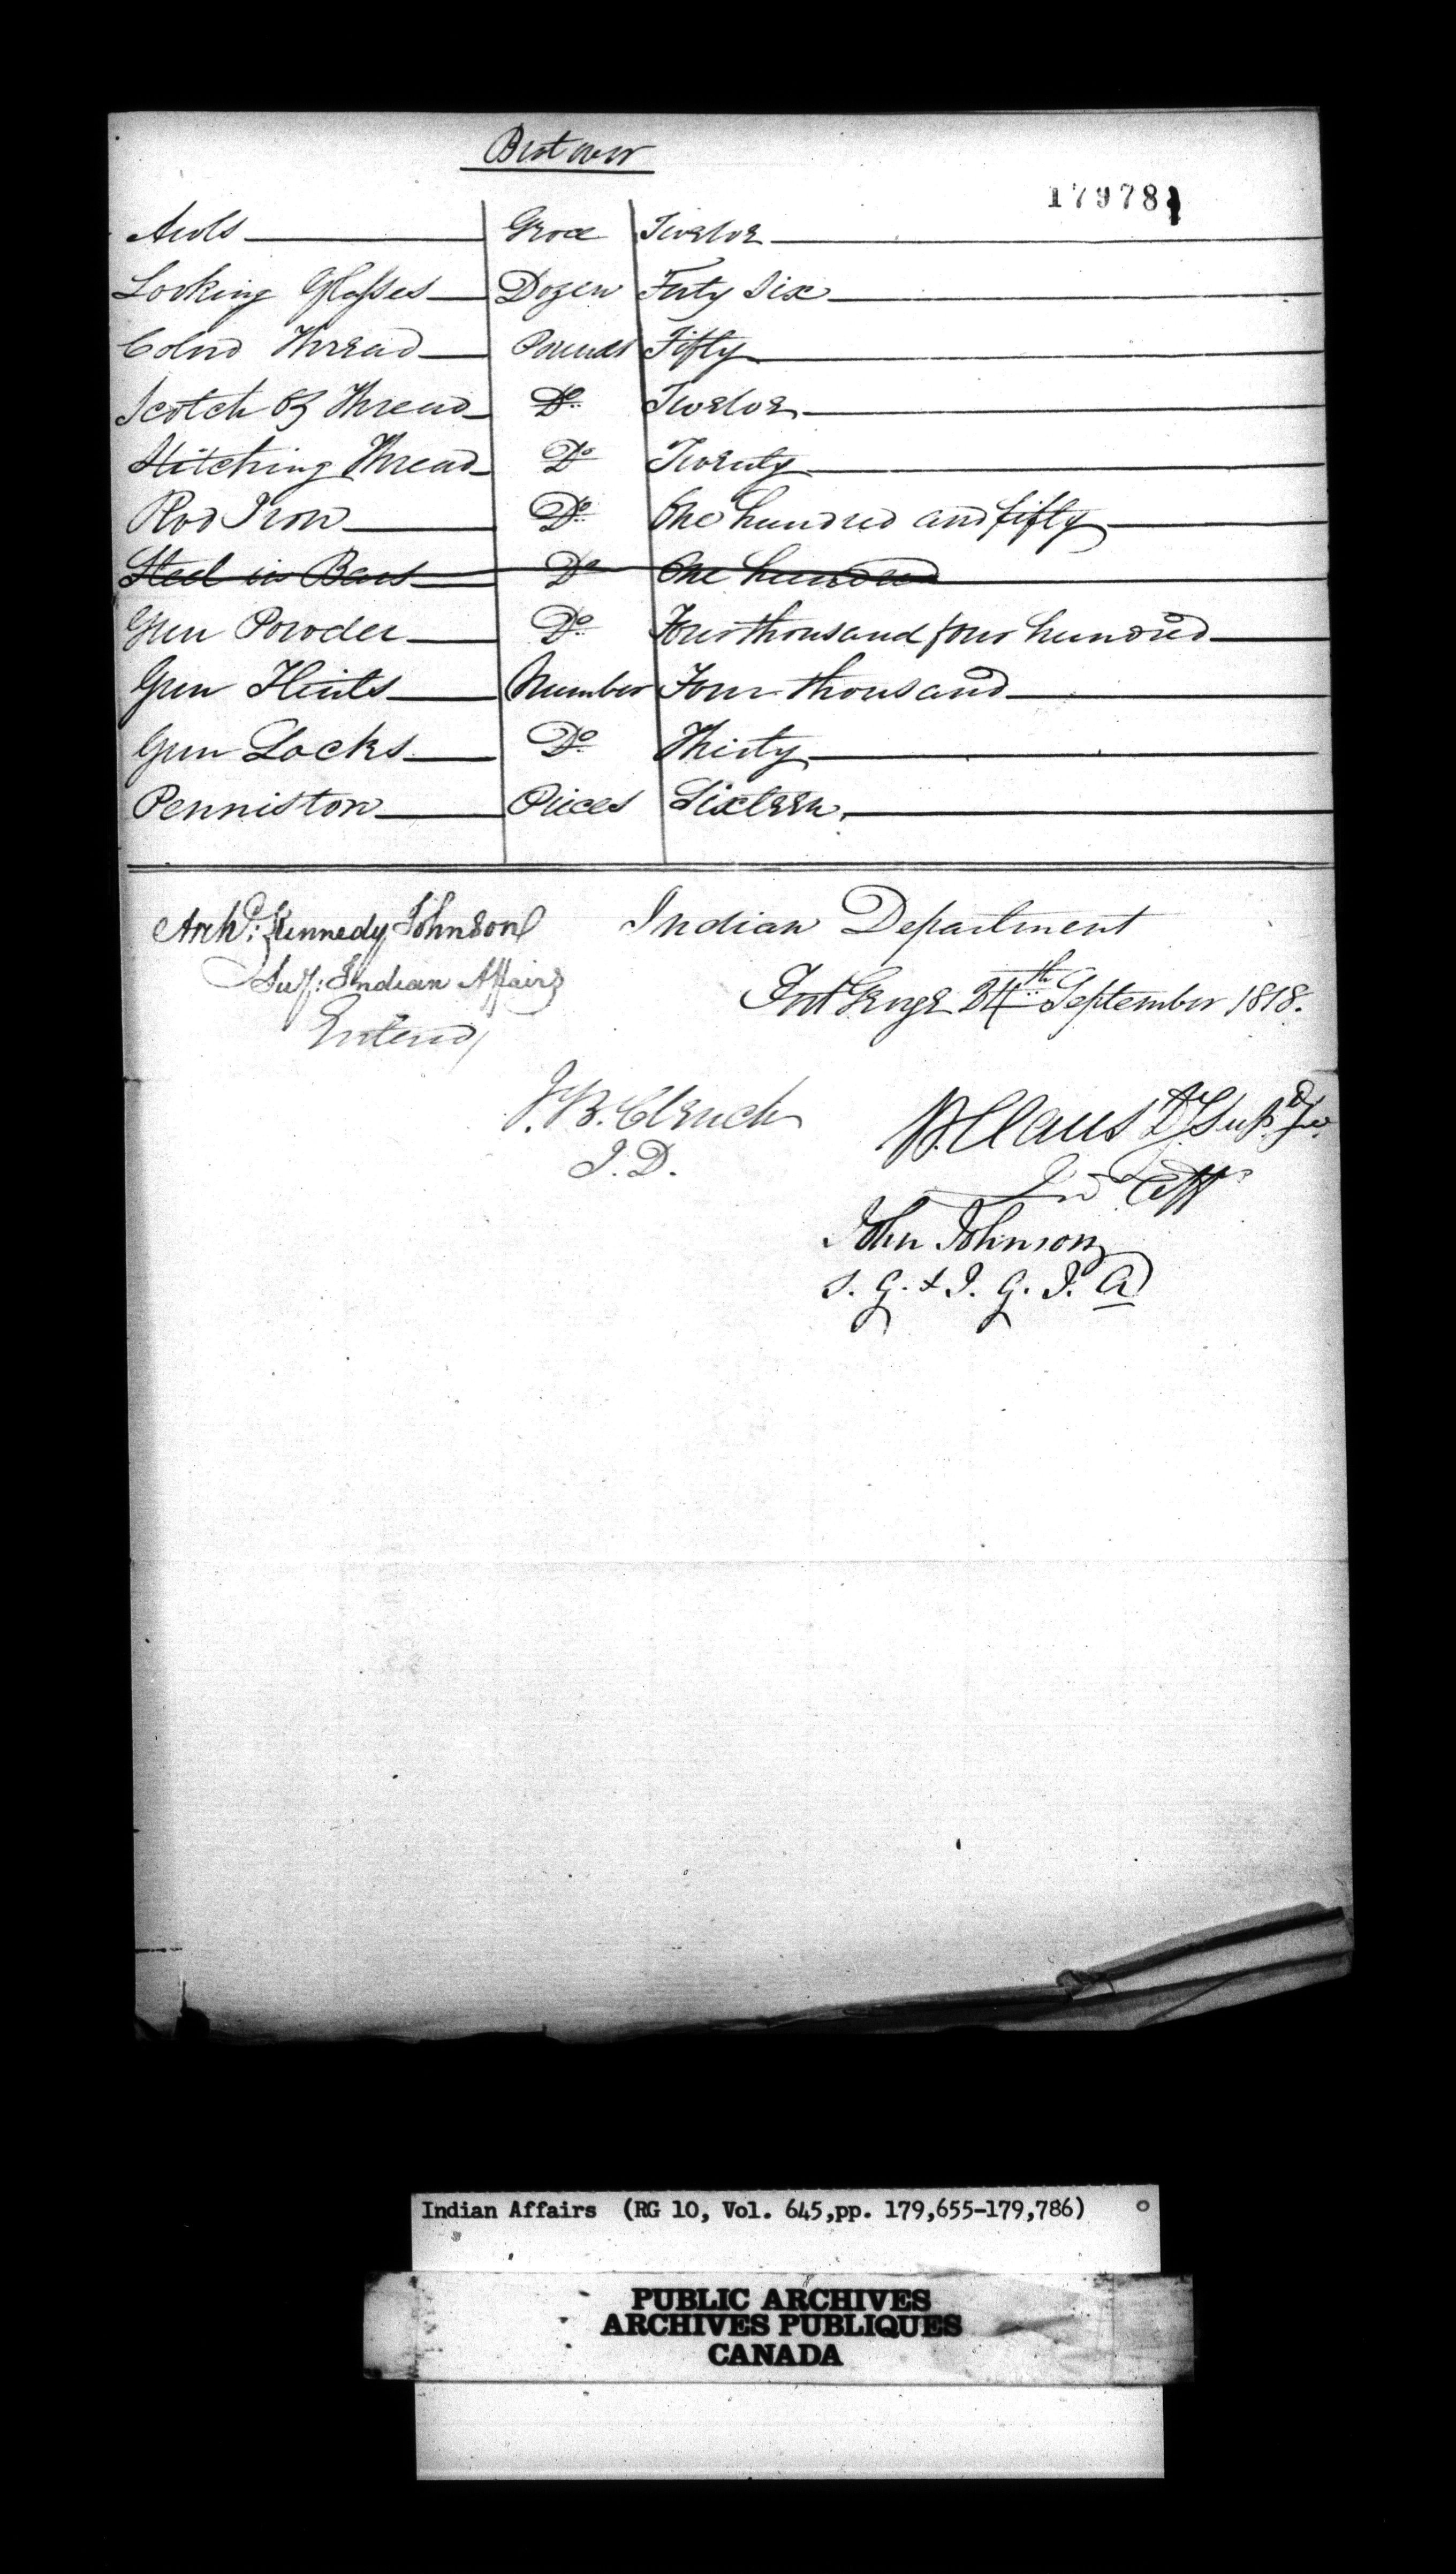 Brot over
179781
Awls Groce Twelve
Looking Glasses Dozen Forty Six
Colrd Thread Pounds Fifty
Scotch Oz Thread Do. Twelve
Stitching Thread Do. Twenty
Rod Iron Do. One hundred and fifty
Steel in Bars Do One hundred
Gun Powder Do. Four thousand four hundred
Gun Flints Number Four thousand
Gun Locks Do. Thirty
Penniston Pieces Sixteen
Archd: Kennedy Johnson Indian Department
Sup: Indian Affairs Fort George 24th September 1818.
J.B. Clench W. Claus D. Sup. Gl.
I.D. In Aff
John Johnson
S. G. & I. G. I. A
Indian Affairs (RG 10, Vol. 645,pp. 179,655-179,786)
PUBLIC ARCHIVES
ARCHIVES PUBLIQUES
CANADA